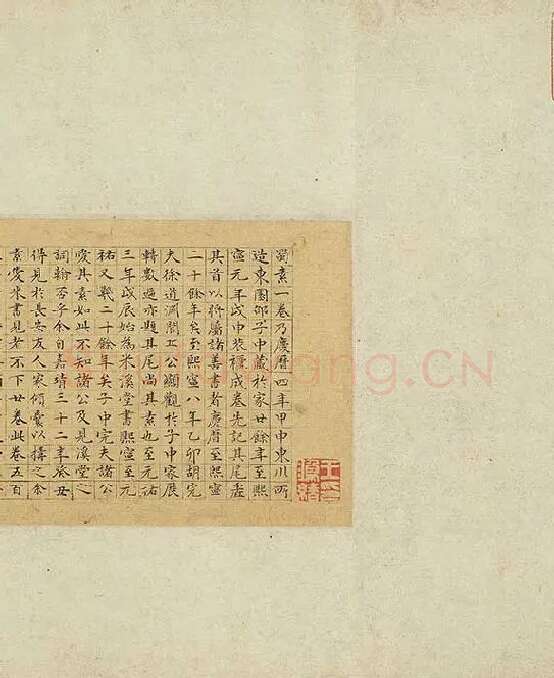 蜀素一卷乃慶曆四年甲申東川所
造東園邵子中藏於家廿餘年至熙
寧元年戊申中裝褾成卷先記其尾虛
其首以將屬諸善書者慶曆至熙寧
二十餘年矣至熙寧八年乙卯胡完
夫徐道淵關工公顓觀於子中家展
轉數過亦題其尾尚其素也至元祐
三年戊辰始為米溪堂書熙寧至元
祐又幾二十餘年矣子中完夫諸公
愛其素如此不知諸公及見溪堂之
詞翰否乎余自嘉靖三十二年癸丑
得見於長安友人家傾囊以搆之余
素愛米書見者不下廿卷此卷五百